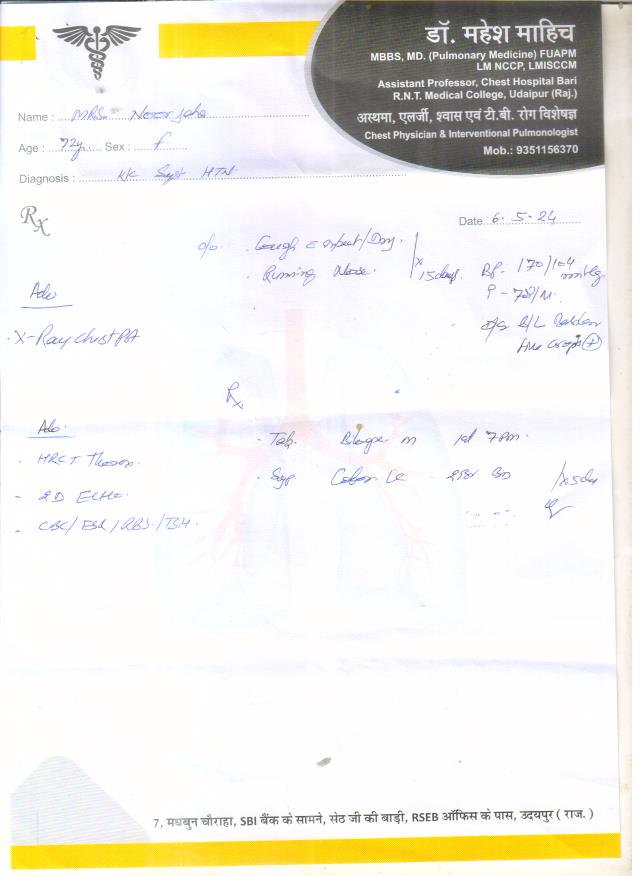 डॉ. महेश माहिच
MBBS, MD. (Pulmonary Medicine) FUAPM
LM NCCP, LMISCCM
Assistant Professor, Chest Hospital Bari
R.N.T. Medical College, Udaipur (Raj.)
अस्थमा, एलर्जी, श्वास एवं टी.बी. रोग विशेषज्ञ
Chest Physician & Interventional Pulmonologist
Mob.: 9351156370
Name : MRS Noor jaha
Age : 72y Sex : f
Diagnosis : K/C Syst HTN
Rx
Date 6-5-24
c/o . Cough c Expect/Dry.
. Running Nose. x 15 days
BP. 170/104 mmHg
P - 78/M.
B/L
Adv
. X-Ray Chest PA
Rx
Adv.
. HRCT Thorax.
- 2D ECHO.
- CBC/ESR/RBS/TSH.
. Tab. M 7 PM.
. Syp. BD x 5 day
7, मधुबन चौराहा, SBI बैंक के सामने, सेठ जी की बाड़ी, RSEB ऑफिस के पास, उदयपुर ( राज. )